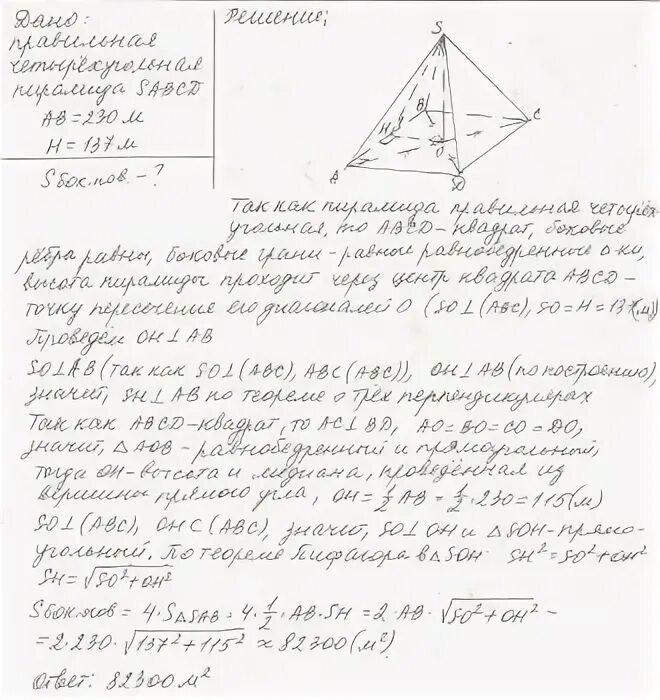 Дано:
правильная
четырёхугольная
пирамида SABCD
AB = 230 м
H = 137 м
Sбок.пов. - ?
Решение:
S
B
C
H
O
A
D
Так как пирамида правильная четырёх-
угольная, то ABCD - квадрат, боковые
рёбра равны, боковые грани - равные равнобедренные Δ-ки,
высота пирамиды проходит через центр квадрата ABCD -
точку пересечение его диагоналей O (SO⊥(ABC), SO = H = 137(м))
Проведём OH⊥AB
SO⊥AB (так как SO⊥(ABC), AB⊂(ABC)), OH⊥AB (по построению),
значит, SH⊥AB по теореме о трёх перпендикулярах
Так как ABCD - квадрат, то AC⊥BD, AO=BO=CO=DO,
значит, ΔAOB - равнобедренный и прямоугольный,
тогда OH - высота и медиана, проведённая из
вершины прямого угла, OH = 1/2 AB = 1/2 · 230 = 115 (м)
SO⊥(ABC), OH⊂(ABC), значит, SO⊥OH и ΔSOH - прямо-
угольный. По теореме Пифагора в ΔSOH: SH² = SO² + OH²
SH = √(SO² + OH²)
Sбок.пов = 4·SΔSAB = 4·1/2·AB·SH = 2·AB·√(SO² + OH²) =
= 2·230·√(137² + 115²) ≈ 82300 (м²)
Ответ: 82300 м²